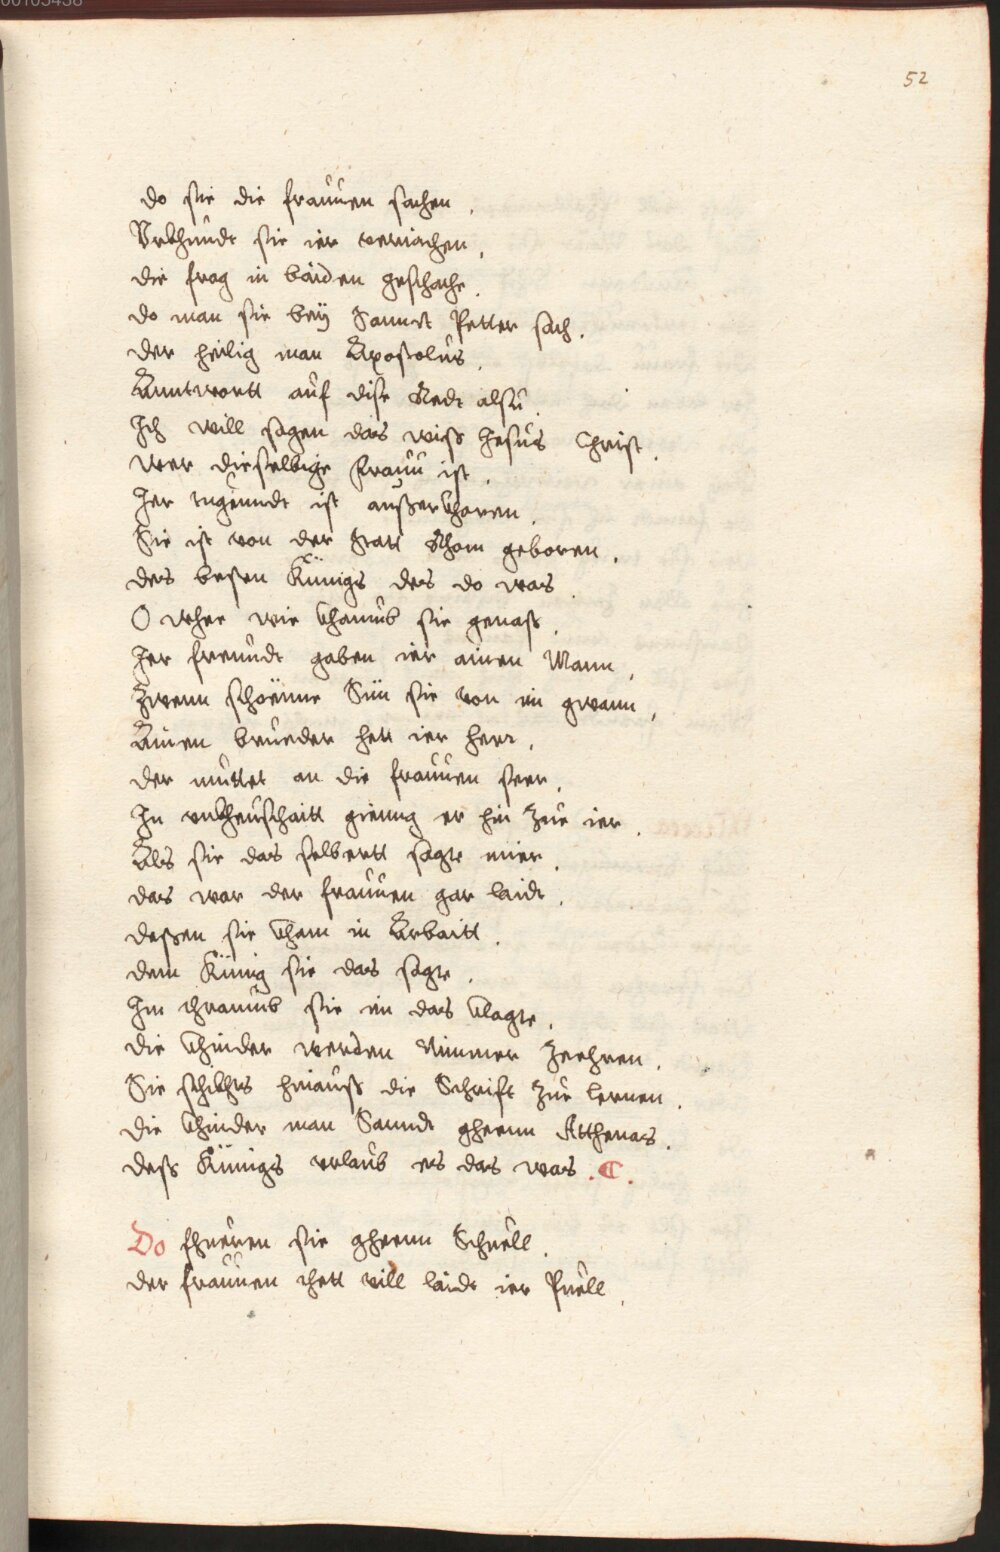 00105458
52
do sie die frauuen sachen.
Vrkhundt sie ier veriachen.
die frag in baiden geschache.
do man sie beÿ Sannct Petter sach.
der heilig man Apostolus.
Anntwortt auf dise Redt alsu.
Ich will sagen das wiss Jesus Christ.
wer dieselbige frauu ist.
Ier tugenndt ist ausserkhoren.
Sie ist von der Statt Rhom geboren.
des besten Künigs der do was.
O wher wie khaumb sie genass.
Ier freundt gaben ier ainen Mann.
Zwenn schoënne Sün sie von im gwann.
Ainen brueder hett ier herr.
der muttet an die frauuen seer.
In unkheuschaitt gienng er hin Zue ier.
Als sie das selbertt sagte mier.
das war der frauuen gar laidt.
dessen sie kham in Arbaitt.
dem Künig sie das sagte.
Im thraumb sie im das klagte.
die khinder werden Nimmer Zeehren.
Sie schikhts hinauss die Schrift Zue lernen.
die khinder man Sanndt gheenn Atthenas.
dess Künigs urlaub es das was.
Do fhueren sie gheenn Schnell.
der frauuen thett vill laidt ier Puell.